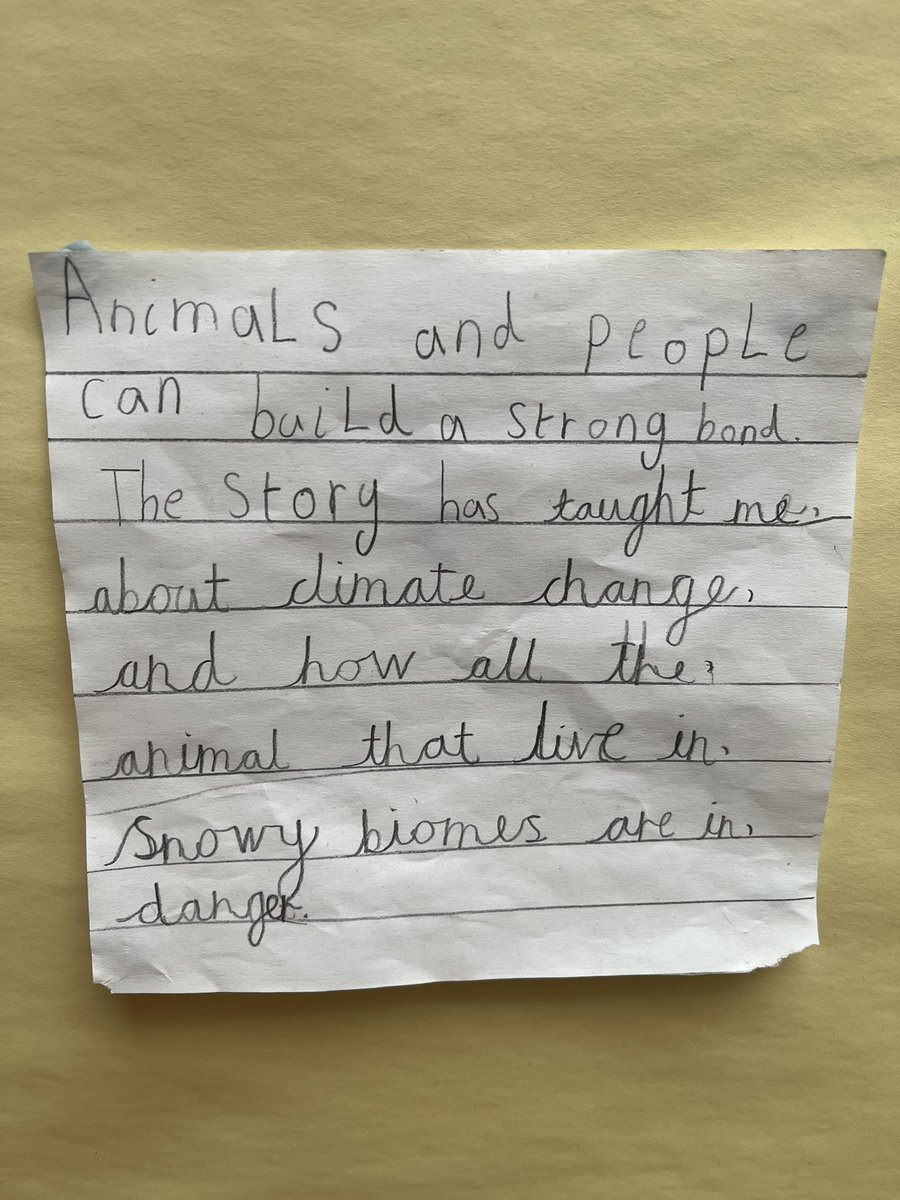 Animals and people
can build a strong bond.
The Story has taught me,
about climate change,
and how all the,
animal that live in,
Snowy biomes are in,
danger.